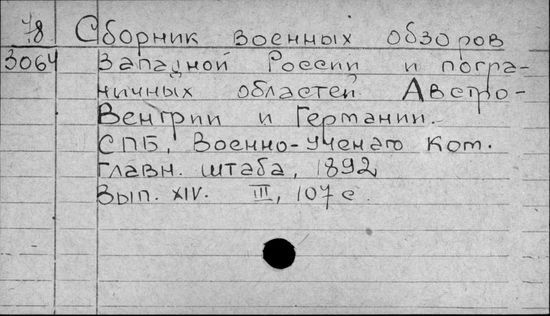 78 Сборник военных обзоров
3064 Западной России и погра-
ничных областей Австро-
Венгрии и Германии.
СПБ, Военно-ученаго Ком.
главн. штаба, 1892
Вып. XIV. III, 107 с.